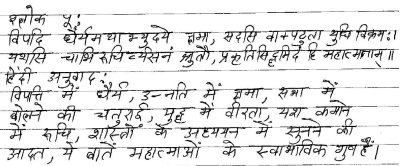 श्लोक पु:
विपदि धैर्यमथाभ्युदये क्षमा, सदसि वाक्पटुता युधि विक्रम:।
यशसि चाभिरूचिर्व्यसनं श्रुतौ, प्रकृतिसिद्धमिदं हि महात्मनाम्॥
हिंदी अनुवाद:
विपत्ति में धैर्य, उन्नति में क्षमा, सभा में
बोलने की चतुराई, युद्ध में वीरता, यश कमाने
में रूचि, शास्त्रों के अध्ययन में सुनने की
आदत, ये बातें महात्माओं के स्वाभाविक गुण हैं।